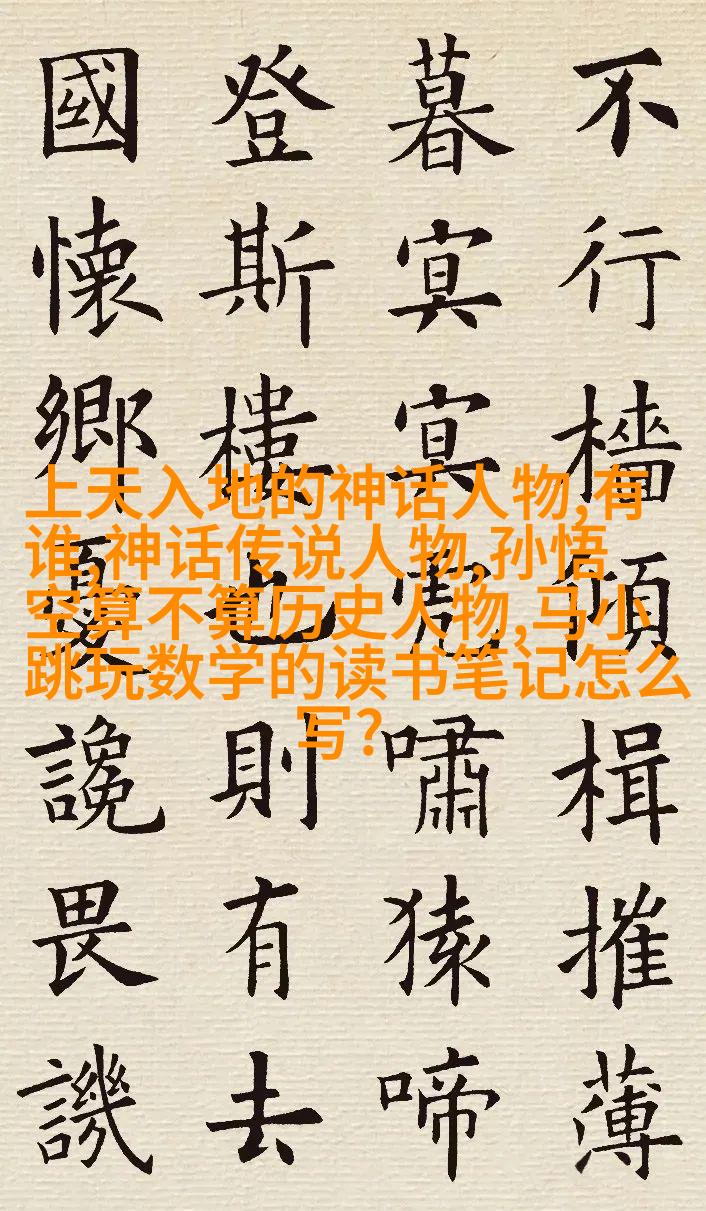 不行檣傾楫摧薄
暮冥冥虎嘯猿啼
登斯樓也則有去
國懷鄉憂讒畏譏
上天入地的神话人物,有
谁,神话传说人物,孙悟
空算不算历史人物,马小
跳玩数学的读书笔记怎么
写?